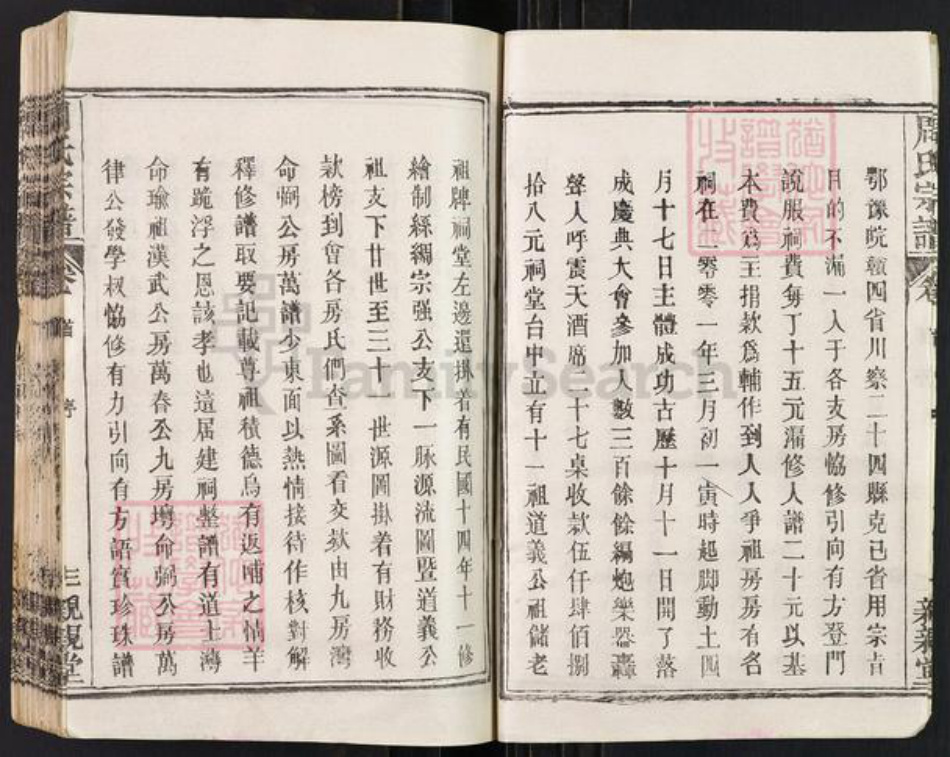 鄂豫皖贛四省川察二十四縣克已省用宗旨
目的不漏一人于各支房恊修引向有方登門
說服祠費每丁十五元漏修人譜二十元以基
本費爲主捐款爲輔作到人人爭祖房房有名
祠在二零零一年三月初一寅時起脚動土四
月十七日主體成功古歷十月十一日開了落
成慶典大會參加人數三百餘餘編炮樂器轟
聲人呼震天酒席二十七桌收款伍仟肆佰捌
拾八元祠堂台中立有十一祖道義公祖儲老
祖牌祠堂左邊還掛着有民國十四年十一修
繪制綵綢宗强公支下一脉源流圖暨道義公
祖支下廿世至三十一世源圖掛着有財務收
款榜到會各房氏們查系圖看交欵由九房灣
命弼公房萬譜少東面以熱情接待作核對解
釋修譜取要記載尊祖積德烏有返哺之情羊
有跪浮之恩該孝也這居建祠整譜有道士灣
命瑜祖漢武公房萬春公九房塆命弼公房萬
律公發學权恊修有力引向有方語賓珍珠譜
周氏宗譜
卷首
序
三
親親堂
FamilySearch